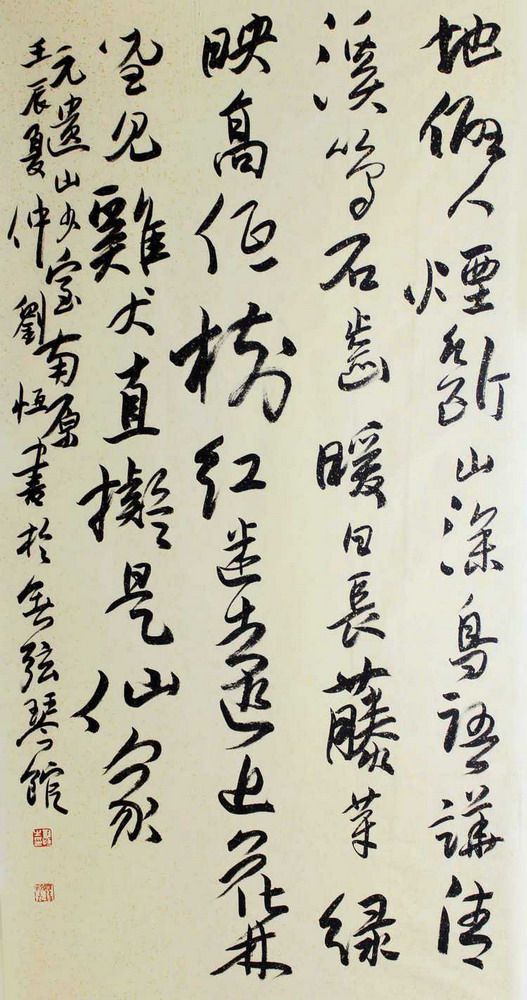 地僻人煙斷山深鳥語譁清
溪鳴石齒暖日長藤芽緑
映高低樹紅迷遠近花林
間見雞犬直擬是仙家
元遺山少室南原
壬辰夏仲劉恒書於無弦琴館